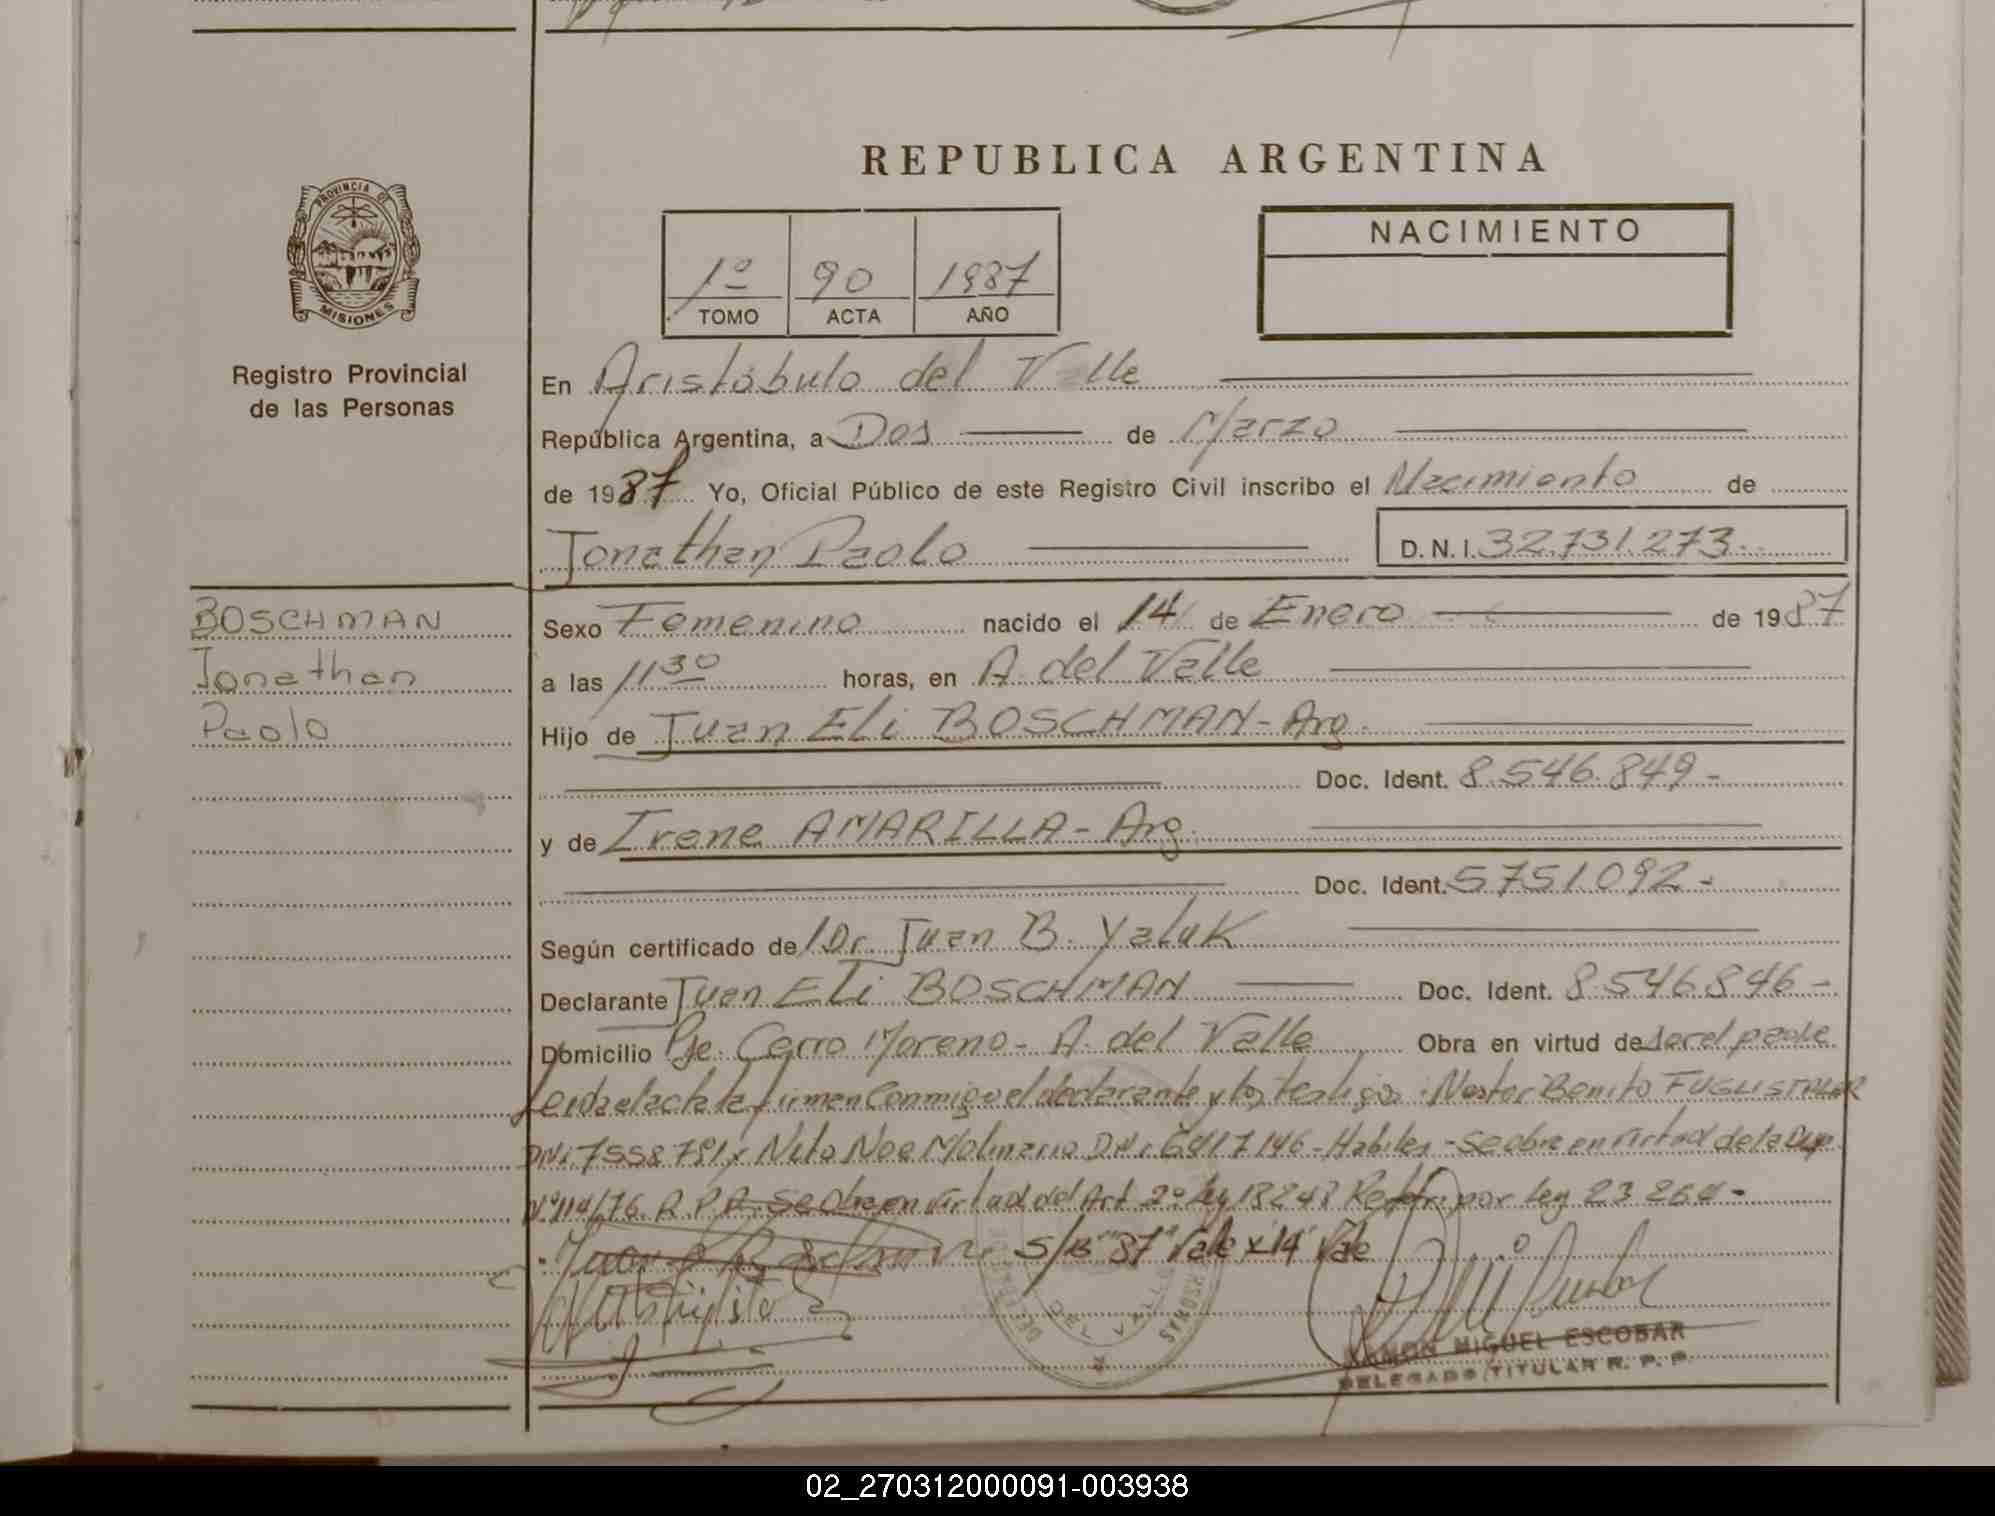 REPUBLICA ARGENTINA
PROVINCIA DE
MISIONES
Registro Provincial
de las Personas
1º 90 1987
TOMO ACTA AÑO
NACIMIENTO
En Aristóbulo del Valle
República Argentina, a Dos de Marzo
de 1987 Yo, Oficial Público de este Registro Civil inscribo el Nacimiento de
Jonathan Paolo D.N.I. 32.731.273.
BOSCHMAN
Jonathan
Paolo
Sexo Femenino nacido el 14 de Enero de 1987
a las 11 30 horas, en A. del Valle
Hijo de Juan Eli BOSCHMAN - Arg.
Doc. Ident. 8.546.849 -
y de Irene AMARILLA - Arg.
Doc. Ident. 5751092 -
Según certificado del Dr. Juan B. Yaluk
Declarante Juan Eli BOSCHMAN Doc. Ident. 8.546.846 -
Domicilio Pje. Cerro Moreno - A. del Valle Obra en virtud de ser el padre
Leida el acta la firman conmigo el declarante y los testigos: Nestor Benito FUGLISTALER
DNI 7558781 y Nilo Noe Molinario DNI 6417146 - Habiles - se obra en virtud de la Disp.
Nº 114/76 R.P.P. se obra en virtud del Art 2º Ley 18248 Reform por Ley 23264 -
S/B "87" Vale x "14" Vale
RAMON MIGUEL ESCOBAR
DELEGADO TITULAR R. P. P.
02_270312000091-003938